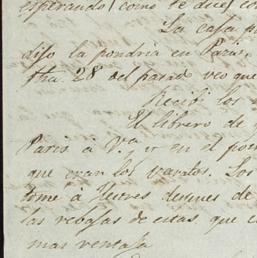 esperando (como te dije) co
La casa p
dijo la pondria en Paris,
fha. 28 del pasad veo que
Recibi los
El librero de
Paris a Va. y en el po
que eran los varatos. Los
tome à despues de
las rebajas de estas que c
mas ventaja